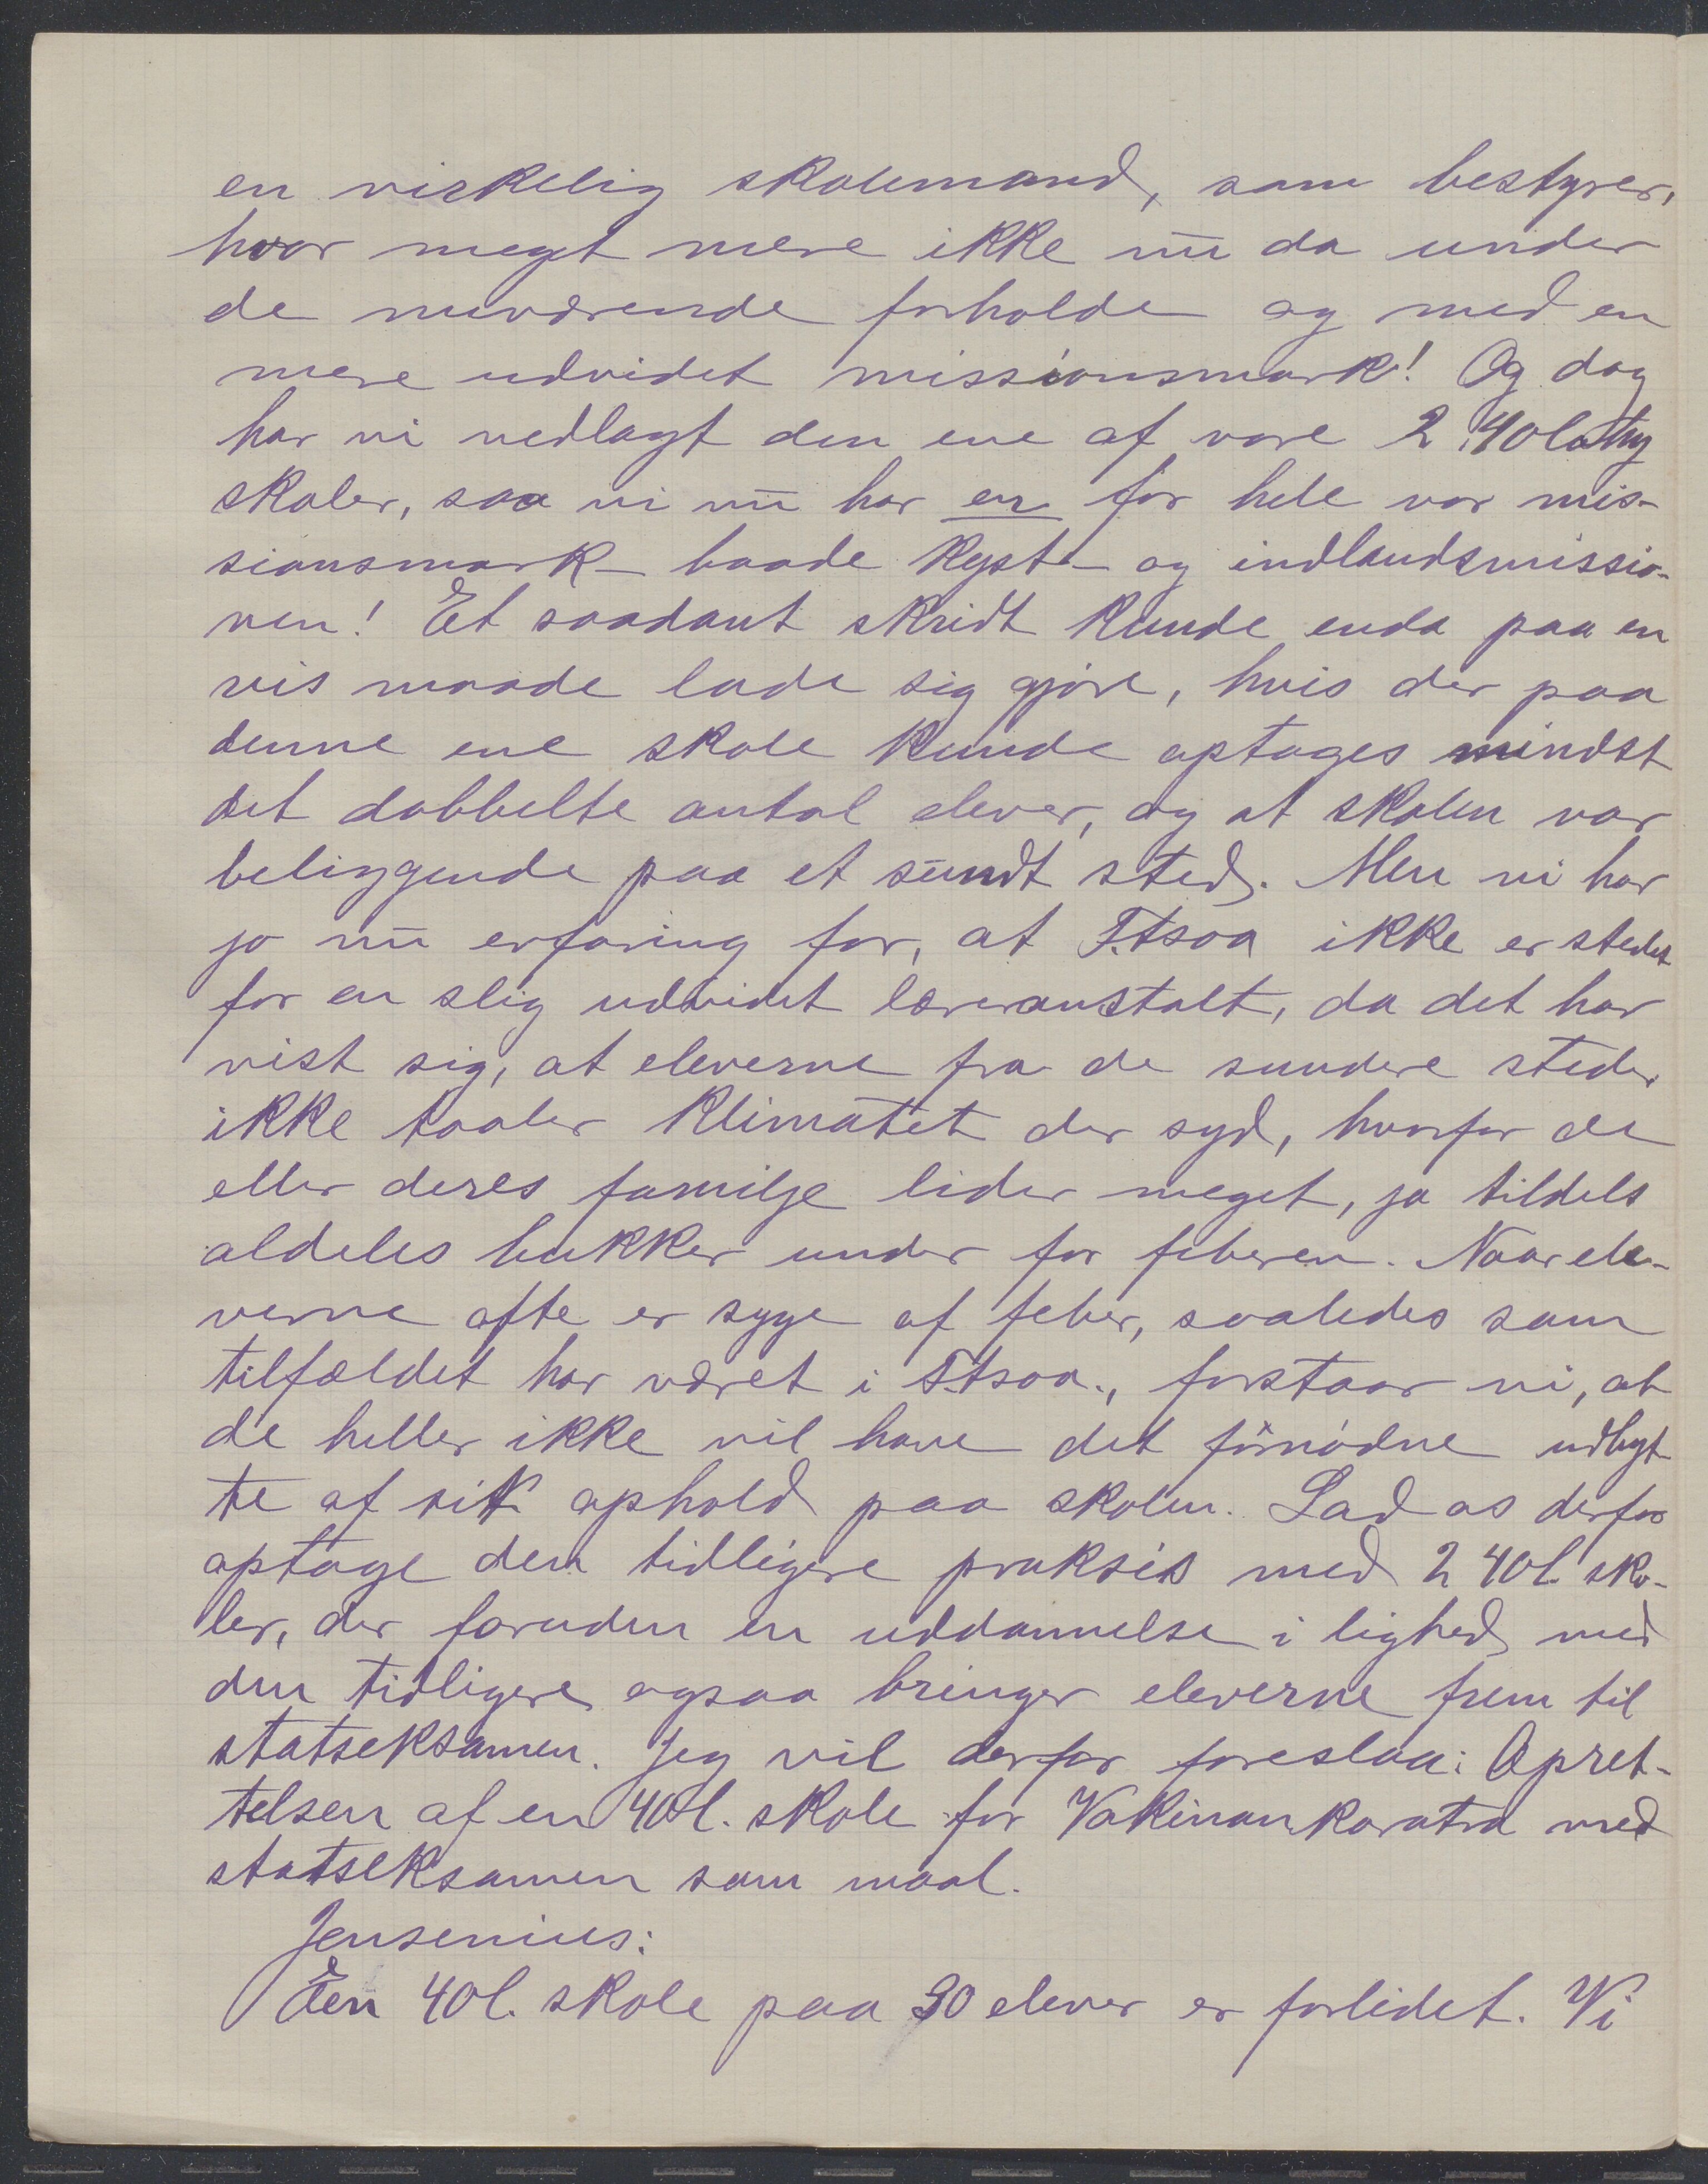 en virkelig skolemand, som bestyrer,
hvor megt mere ikke nu da under
de nuværende forholde og med en
mere udvidet missionsmark! Og dog
har vi nedlagt den ene af vore 2 40lahy
skoler, saa vi nu har en for hele vor mis-
sionsmark – baade kyst- og indlandsmissio-
nen! Et saadant skridt kunde enda paa en
vis maade lade sig gjøre, hvis der paa
denne ene skole kunde optages mindst
det dobbelte antal elever, og at skolen var
beliggende paa et sundt sted. Men vi har
jo nu erfaring for, at F.tsoa ikke er stedet
for en slig udvidet læreranstalt, da det har
vist sig, at eleverne fra de sundere steder
ikke taaler klimatet der syd, hvorfor de
eller deres familje lider meget, ja tildels
aldeles bukker under for feberen. Naar ele-
verne ofte er syge af feber, saaledes som
tilfældet har været i F.tsoa., forstaar vi, at
de heller ikke vil have det fornødne udbyt-
te af sit ophold paa skolen. Lad os derfor
optage den tidligere praksis med 2 40l. sko-
ler, der foruden en uddannelse i lighed med
den tidligere ogsaa bringer eleverne frem til
statseksamen. Jeg vil derfor foreslaa: Opret-
telsen af en 40l. skole for Vakinankaratra med
statseksamen som maal.
Jensenius:
Èn 40l. skole paa 30 elever er forlidet. Vi